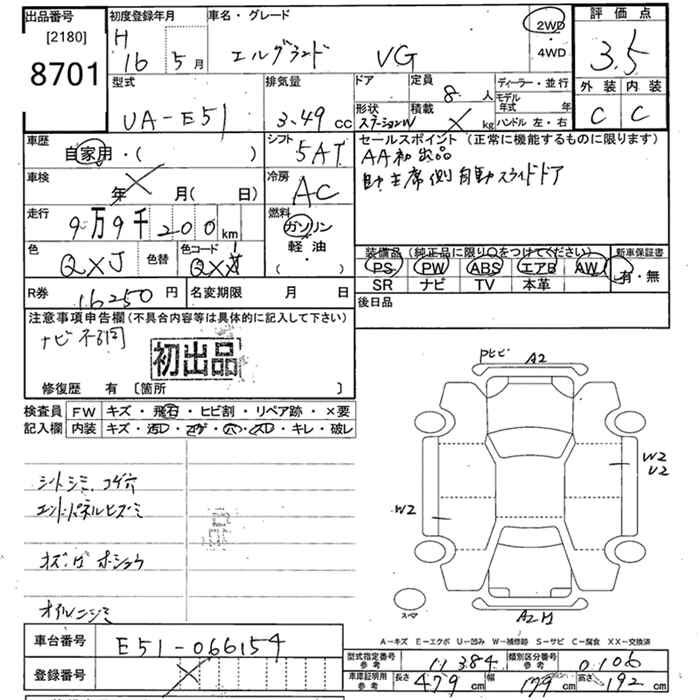 出品番号
[2180]
8701
初度登録年月
H 16 5月
車名・グレード
エルグランド VG
2WD
4WD
評価点
3.5
型式
UA-E51
排気量
3.49 cc
ドア
形状
ステーションW
定員
8人
積載
× kg
ディーラー・並行
モデル年式 年
ハンドル 左・右
外装 内装
C C
車歴
自家用・( )
シフト
5AT
セールスポイント (正常に機能するものに限ります)
AA初出品
助手席側自動スライドドア
車検
年 月( 日)
冷房
AC
走行
9万9千200km
燃料
ガソリン
軽油
( )
色
QXJ
色替
色コード
装備品 (純正品に限り○をつけてください)
PS PW ABS エアB AW
SR ナビ TV 本革
新車保証書
有・無
R券
16250円
名変期限 月 日
後日品
注意事項申告欄(不具合内容等は具体的に記入して下さい)
ナビ不調
初出品
修復歴 有 〔箇所 〕
検査員記入欄
FW キズ・飛石・ヒビ割・リペア跡・×要
内装 キズ・汚レ・コゲ・穴・スレ・キレ・破レ
シートシミ、コゲ穴
オイルニジミ
A2
W2
U2
W2
スマ
A-キズ E-エクボ U-凹み W-補修跡 S-サビ C-腐食 XX-交換済
車台番号
E51-066154
登録番号
型式指定番号 参考
11384
類別区分番号 参考
0106
車庫証明用 参考
長さ 479 cm 幅 179 cm 高さ 192 cm